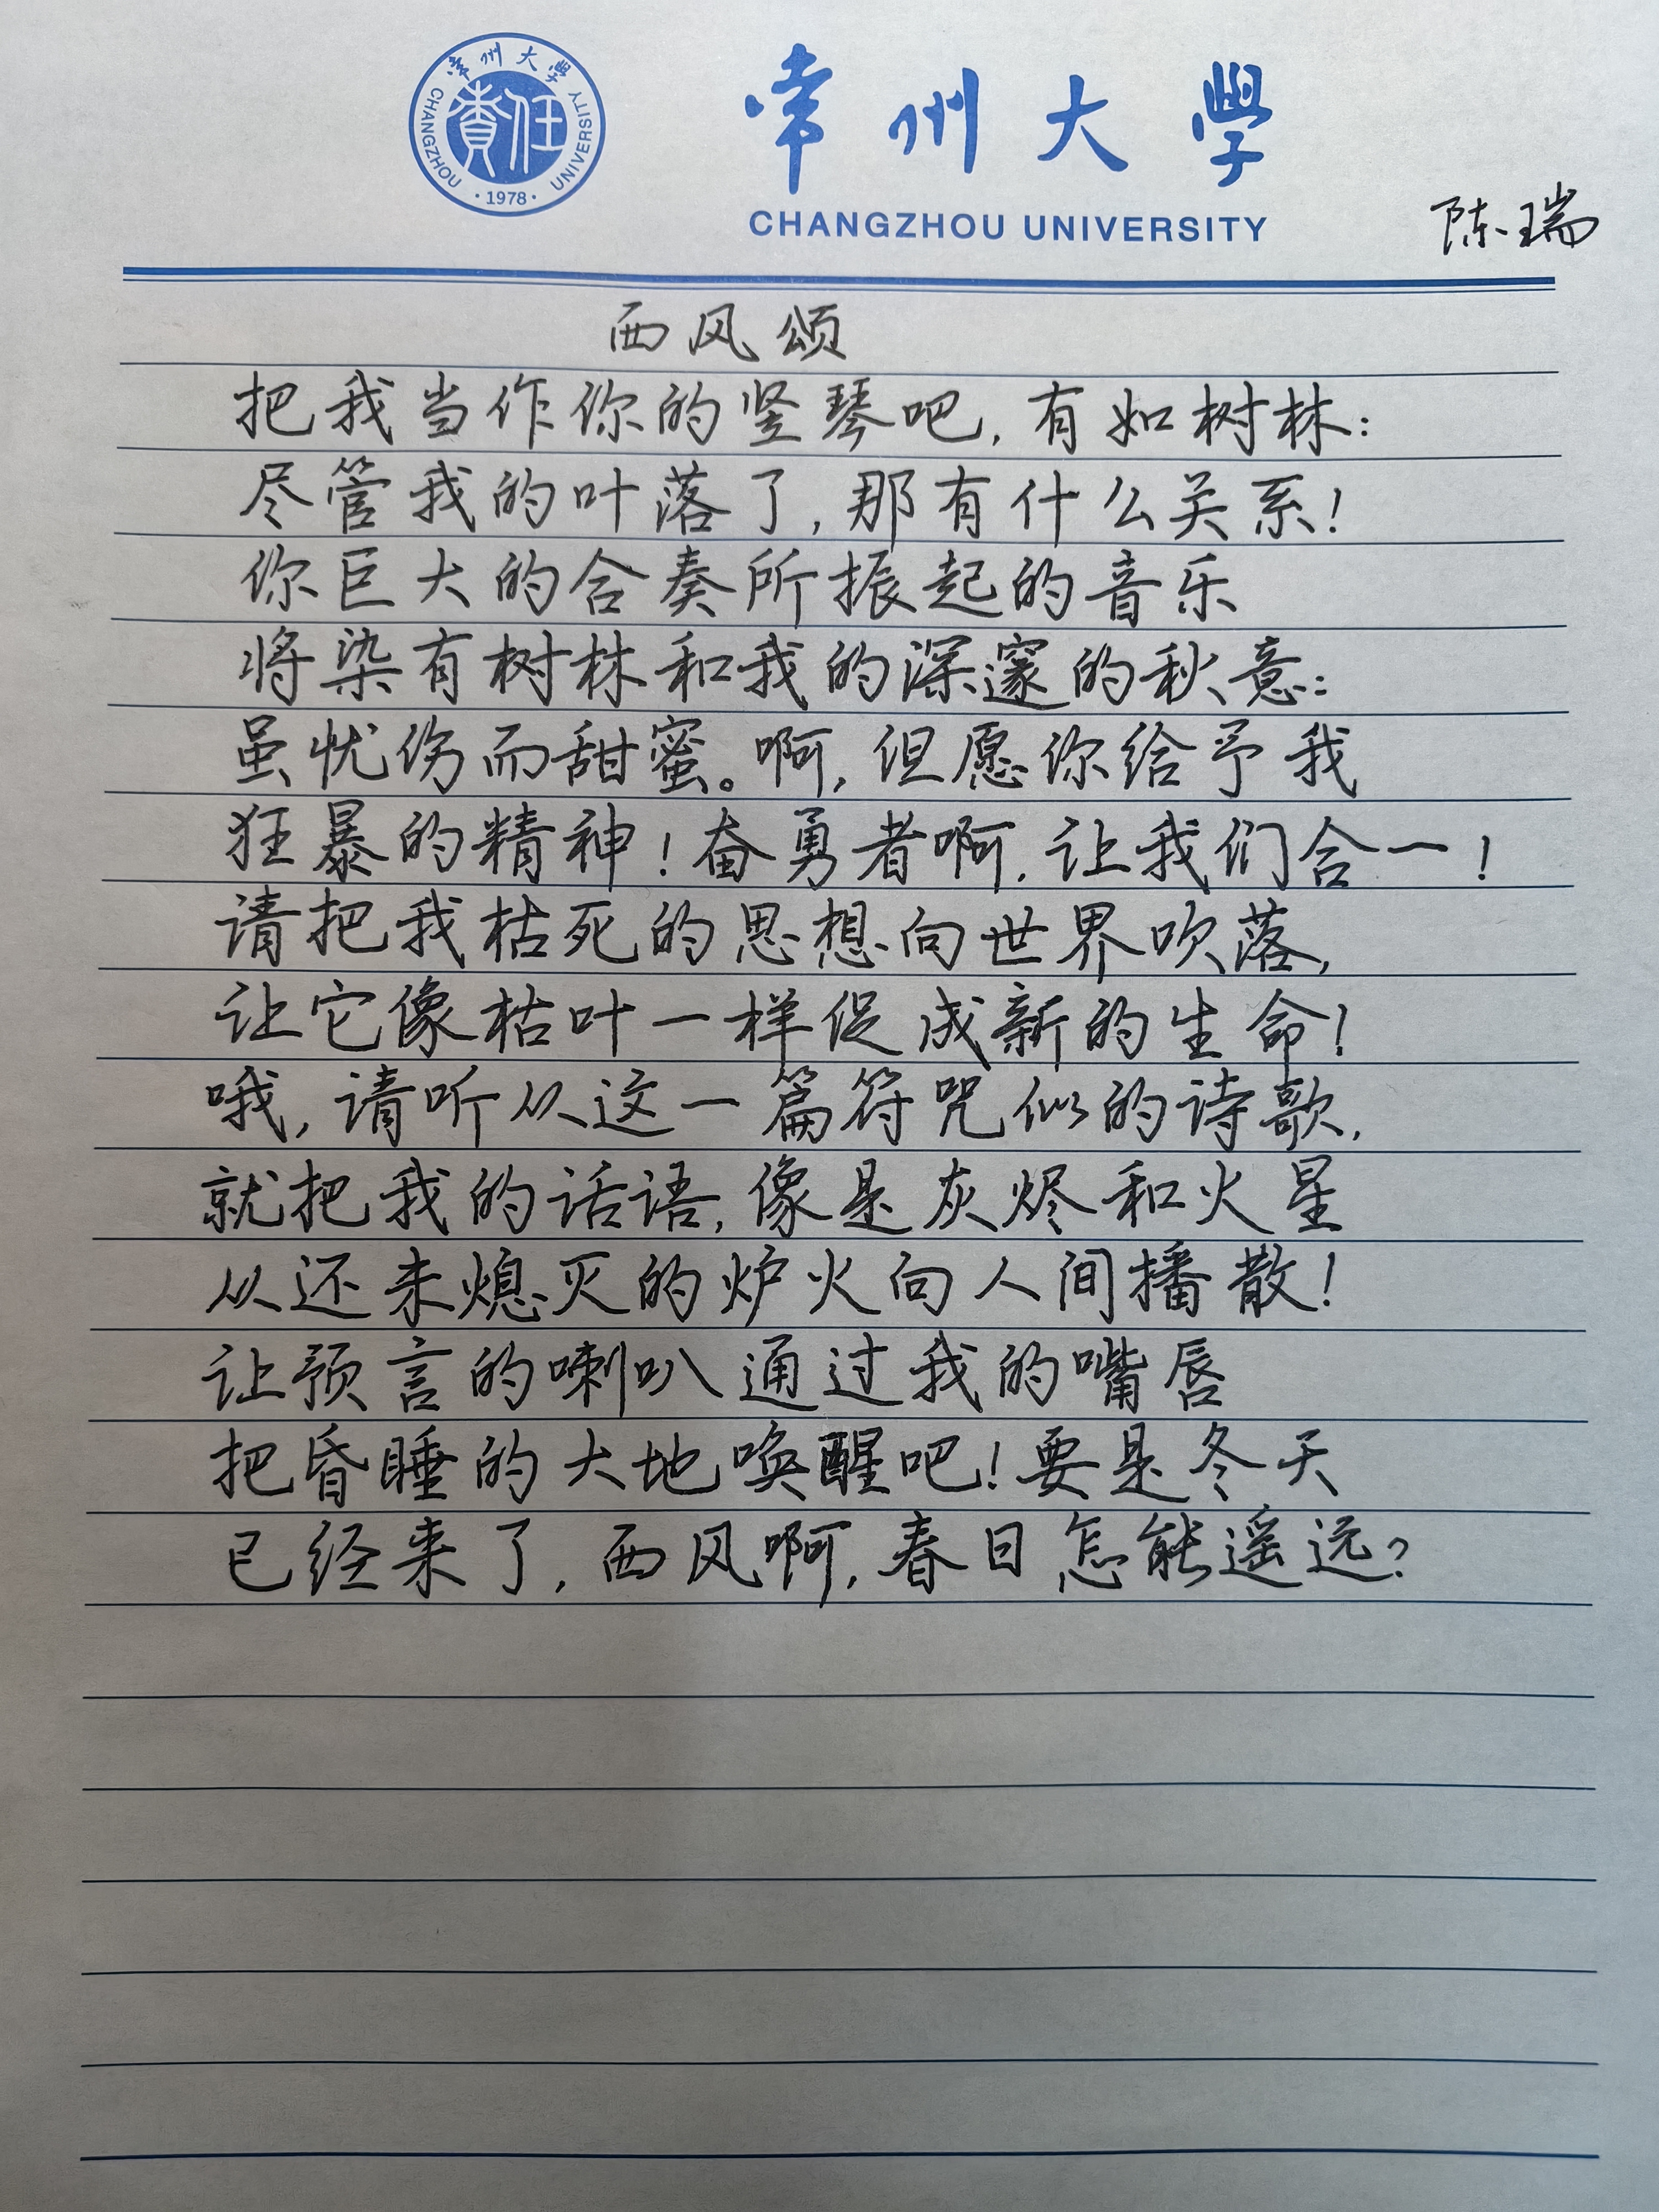 常州大學
CHANGZHOU UNIVERSITY
責任
·1978·
常州大學
CHANGZHOU UNIVERSITY
陈瑞
西风颂
把我当作你的竖琴吧,有如树林:
尽管我的叶落了,那有什么关系!
你巨大的合奏所振起的音乐
将染有树林和我的深邃的秋意:
虽忧伤而甜蜜。啊,但愿你给予我
狂暴的精神!奋勇者啊,让我们合一!
请把我枯死的思想向世界吹落,
让它像枯叶一样促成新的生命!
哦,请听从这一篇符咒似的诗歌,
就把我的话语,像是灰烬和火星
从还未熄灭的炉火向人间播散!
让预言的喇叭通过我的嘴唇
把昏睡的大地唤醒吧!要是冬天
已经来了,西风啊,春日怎能遥远?